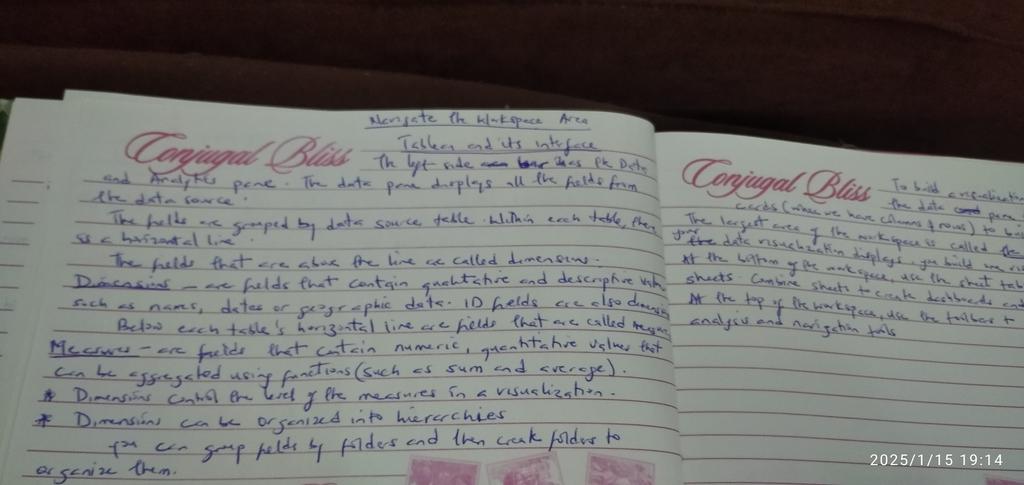 Navigate the Workspace Area
Conjugal Bliss
Tableau and its interface
The left side has the Data
and Analytics pane. The data pane displays all the fields from
the data source.
The fields are grouped by data source table. Within each table, there
is a horizontal line.
The fields that are above the line are called dimensions.
Dimensions - are fields that contain qualitative and descriptive values
such as names, dates or geographic data. ID fields are also
Below each table's horizontal line are fields that are called
Measures - are fields that contain numeric, quantitative values that
can be aggregated using functions (such as sum and average).
* Dimensions control the level of the measures in a visualization.
* Dimensions can be organized into hierarchies
you can group fields by folders and then create folders to
organize them.
Conjugal Bliss
To build a visualization
the data pane
cards (where we have columns & rows) to
The largest area of the workspace is called the
your data visualization displays. you build
At the bottom of the workspace, use the sheet
sheets. Combine sheets to create dashboards and
At the top of the workspace, use the toolbar
analysis and navigation tools
2025/1/15 19:14